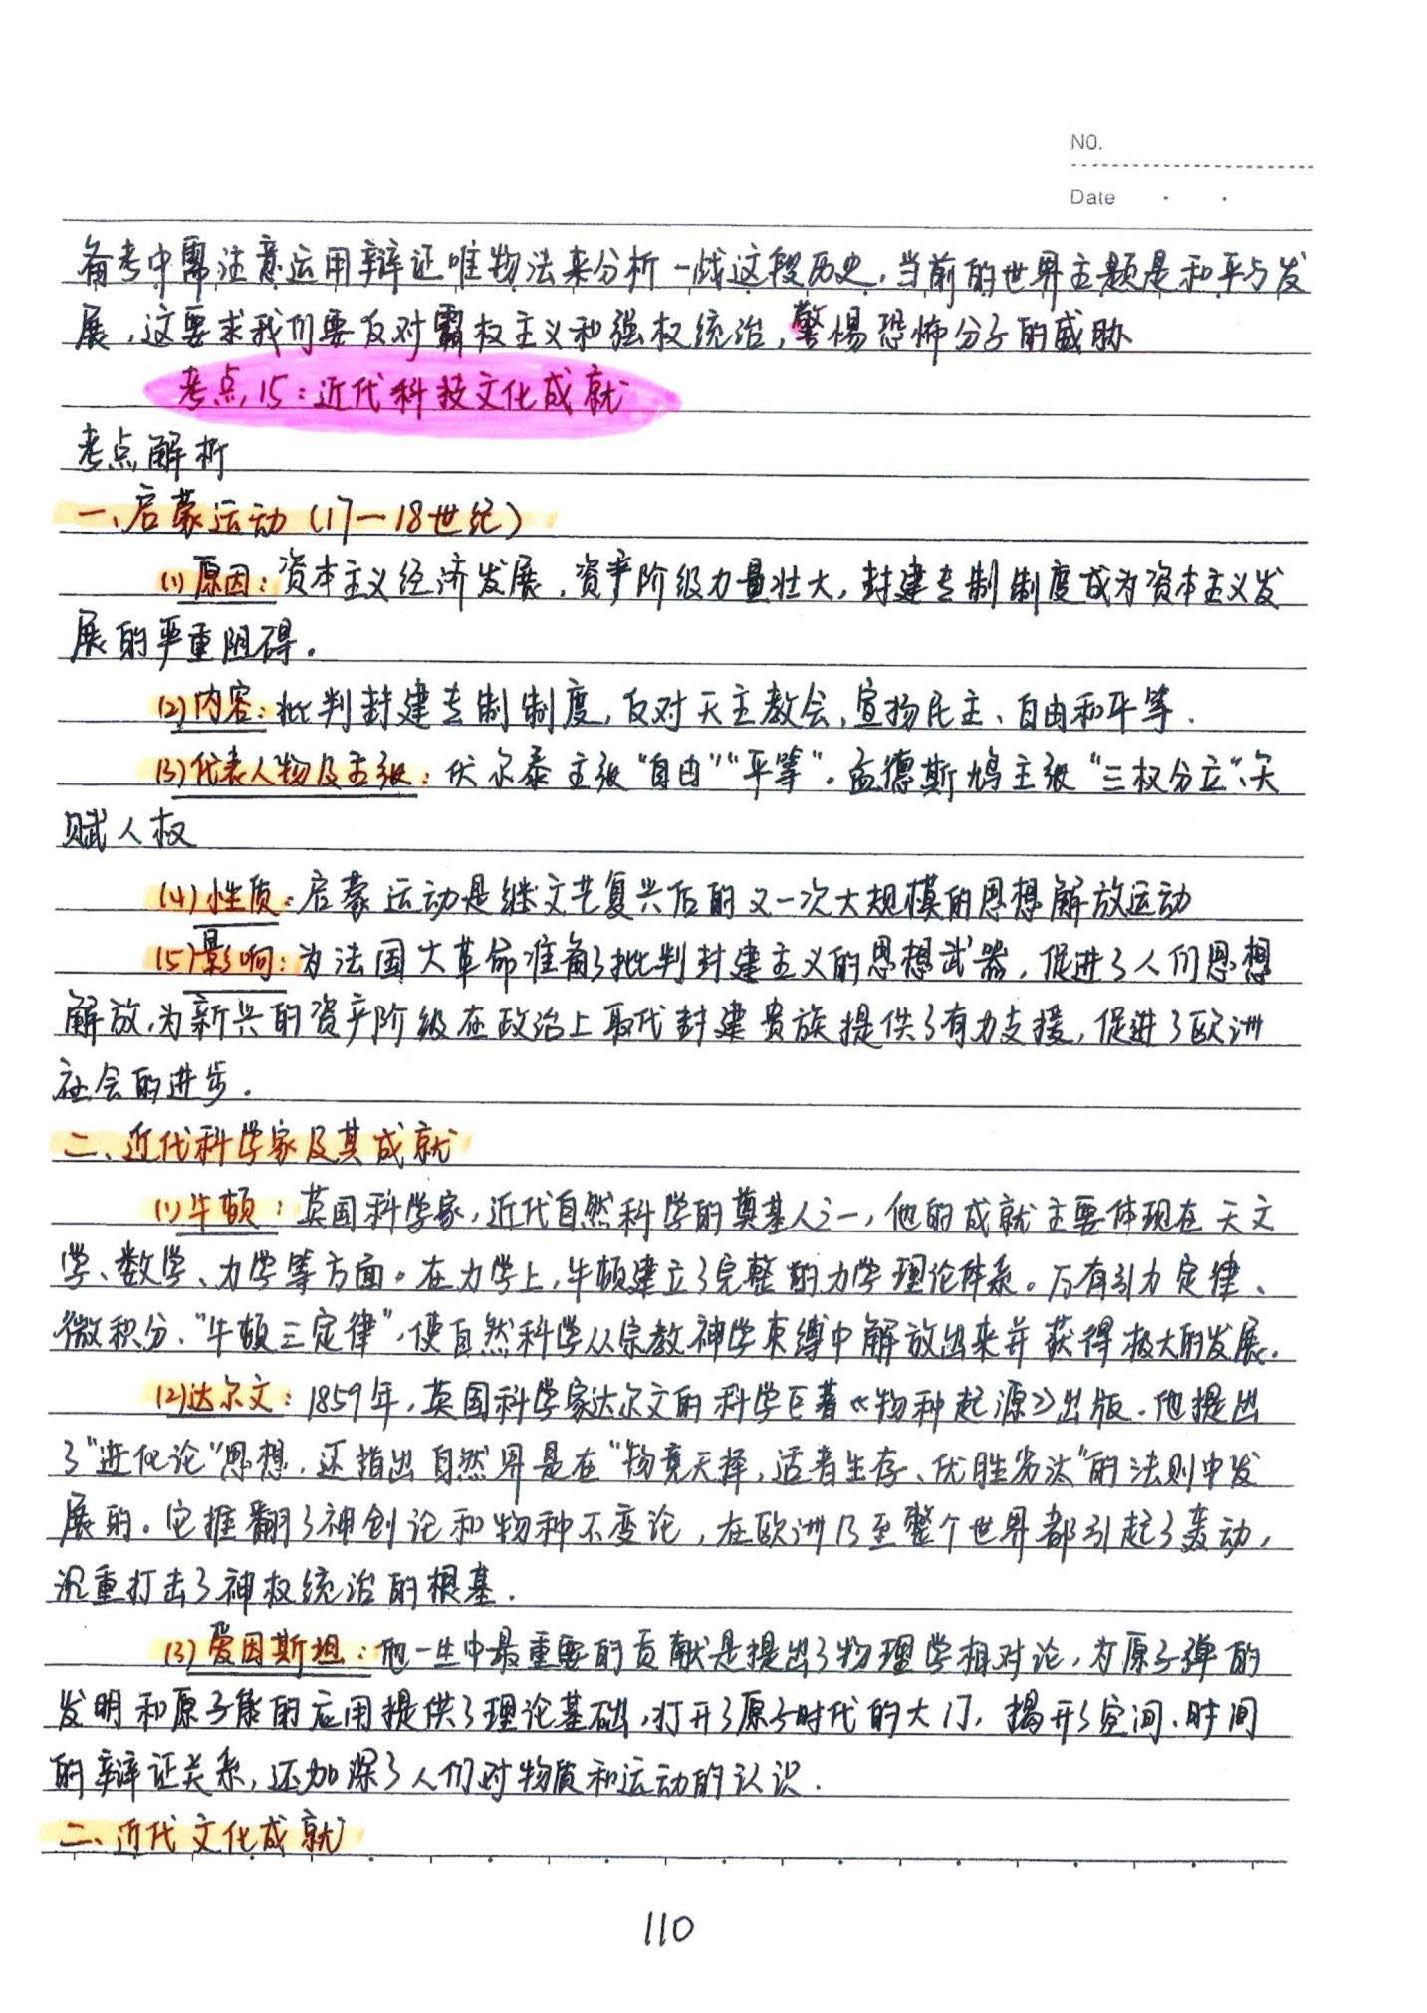 NO.
Date
备考中需注意运用辩证唯物法来分析一战这段历史,当前的世界主题是和平与发
展,这要求我们要反对霸权主义和强权统治,警惕恐怖分子的威胁
考点15:近代科技文化成就
考点解析
一、启蒙运动(17—18世纪)
(1)原因:资本主义经济发展,资产阶级力量壮大,封建专制制度成为资本主义发
展的严重阻碍。
(2)内容:批判封建专制制度,反对天主教会,宣扬民主、自由和平等.
(3)代表人物及主张:伏尔泰主张“自由”“平等”.孟德斯鸠主张“三权分立”、天
赋人权
(4)性质:启蒙运动是继文艺复兴后的又一次大规模的思想解放运动
(5)影响:为法国大革命准备了批判封建主义的思想武器,促进了人们思想
解放,为新兴的资产阶级在政治上取代封建贵族提供了有力支援,促进了欧洲
社会的进步.
二、近代科学家及其成就
(1)牛顿:英国科学家,近代自然科学的奠基人之一,他的成就主要体现在天文
学、数学、力学等方面。在力学上,牛顿建立了完整的力学理论体系。万有引力定律、
微积分、“牛顿三定律”,使自然科学从宗教神学束缚中解放出来并获得极大的发展.
(2)达尔文:1859年,英国科学家达尔文的科学巨著《物种起源》出版.他提出
了“进化论”思想,还指出自然界是在“物竞天择,适者生存、优胜劣汰”的法则中发
展的。它推翻了神创论和物种不变论,在欧洲乃至整个世界都引起了轰动,
沉重打击了神权统治的根基.
(3)爱因斯坦:他一生中最重要的贡献是提出了物理学相对论,为原子弹的
发明和原子能的应用提供了理论基础,打开了原子时代的大门,揭开了空间、时间
的辩证关系,还加深了人们对物质和运动的认识.
二、近代文化成就
110